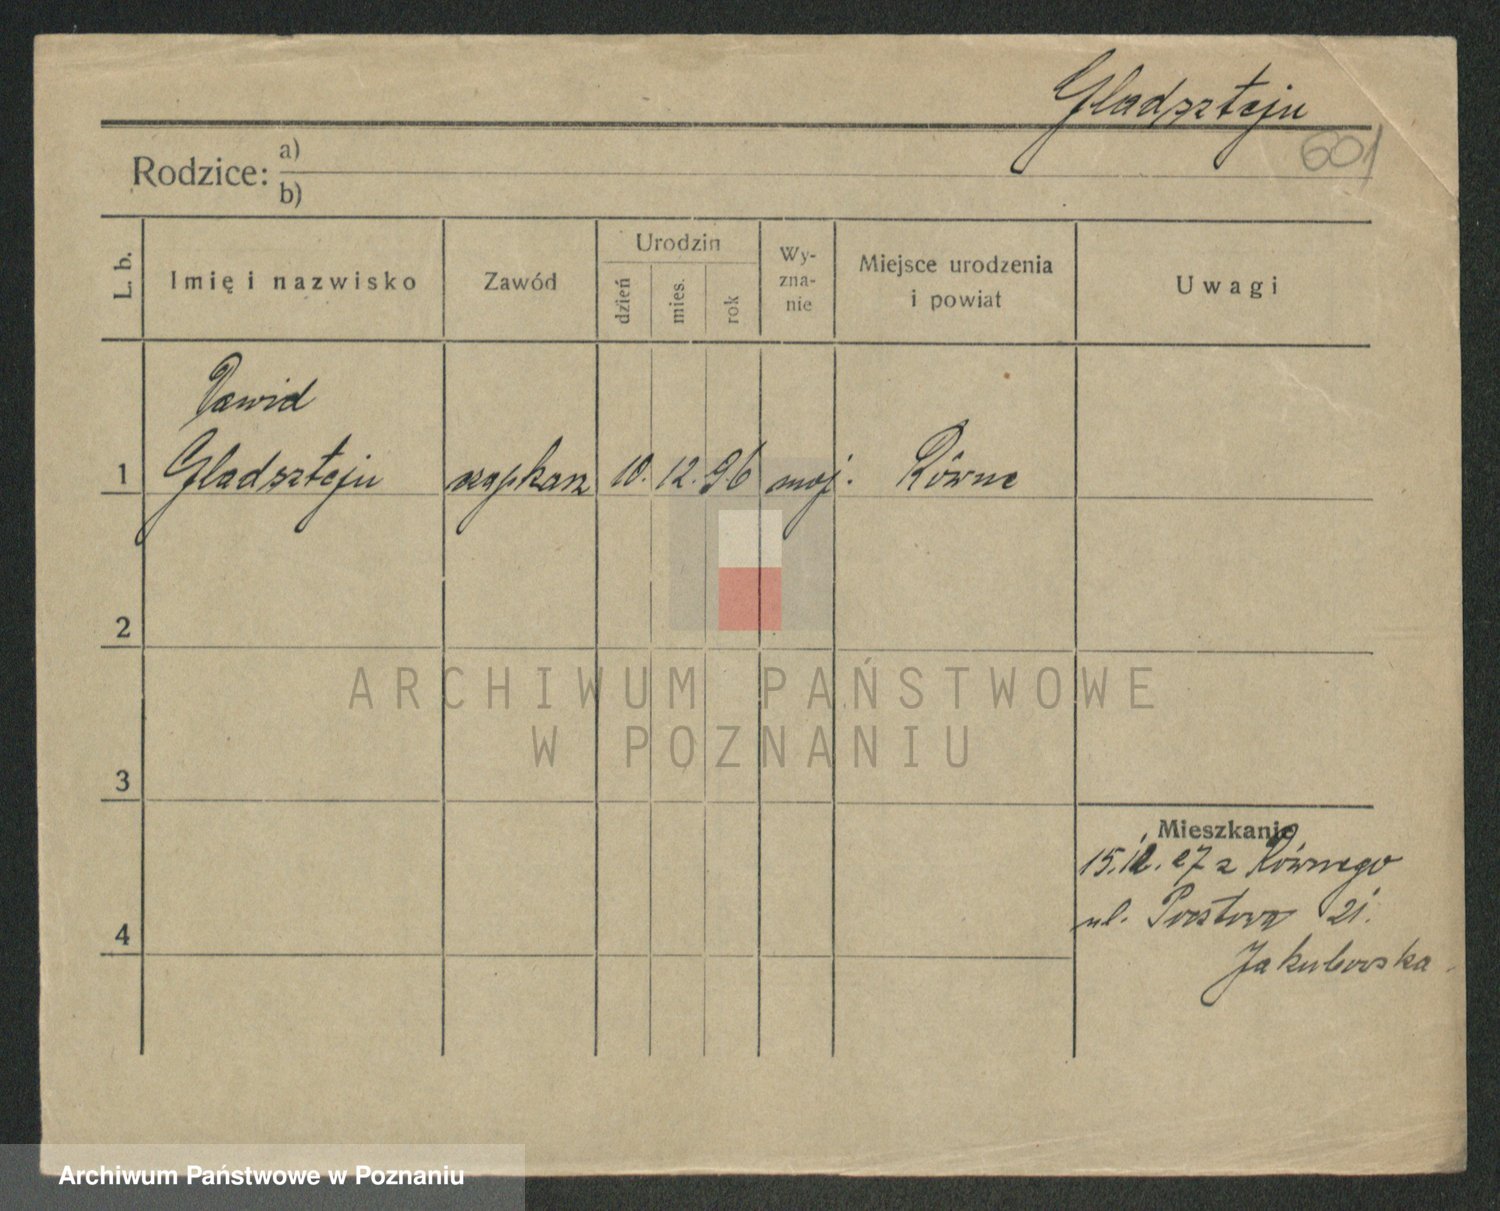 Gladsztejn
601
Rodzice: a)
b)
L. b.
Imię i nazwisko
Zawód
Urodzin
dzień
mies.
rok
Wy-
zna-
nie
Miejsce urodzenia
i powiat
Uwagi
Dawid
1 Gladsztejn czapkarz 10. 12. 96 moj. Równe
2
3
4
Mieszkanie
15. 12. 27 z Równego
ul. Pocztowa 21.
Jakubowska
ARCHIWUM PAŃSTWOWE
W POZNANIU
Archiwum Państwowe w Poznaniu